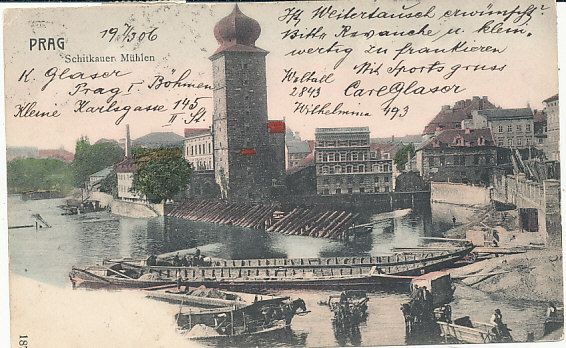 19/3 06
PRAG
Schitkauer Mühlen
K. Glaser
Prag I Böhmen
Kleine Karlsgasse 145
II St.
Ist Weitertausch erwünscht?
Bitte Revanche u. klein,
wertig zu frankieren
Mit Sportsgruss
Weltall
2843
Carl Glaser
Wilhelmina 493
18